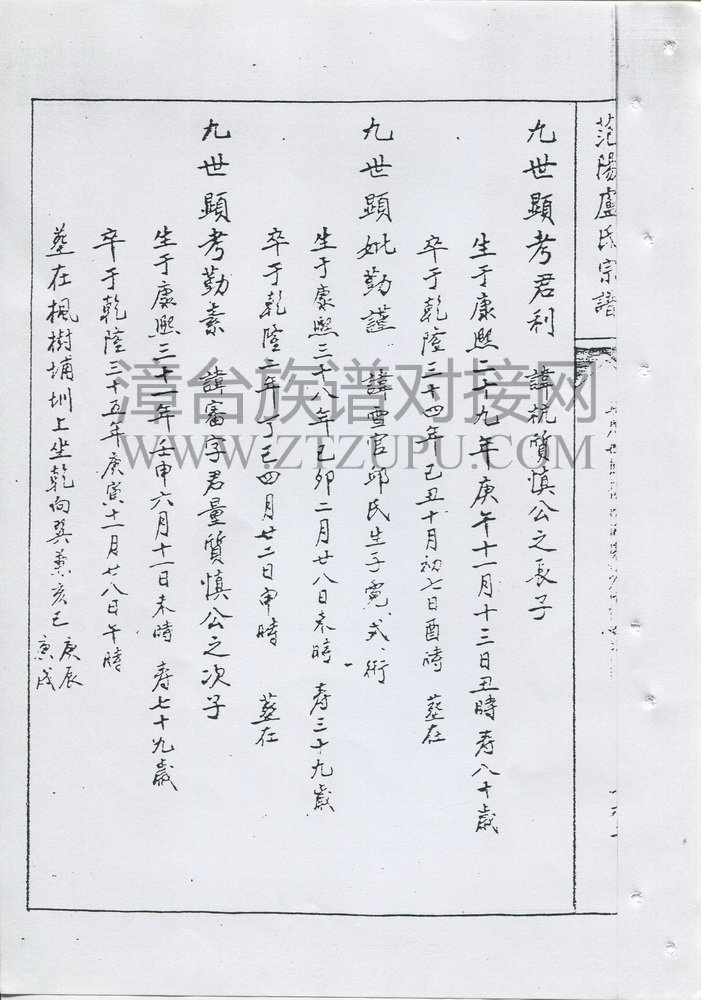 范陽盧氏宗譜
九世顯考君利 諱 質慎公之長子
生于康熙二十九年庚午十一月十三日丑時 壽八十歲
卒于乾隆三十四年己丑十月初七日酉時 塟在
九世顯妣勤謹 諱雪官邱氏生子 式、衍
生于康熙三十八年己卯二月廿八日未時 壽三十九歲
卒于乾隆二年丁巳四月廿二日申時 塟在
九世顯考勤素 諱審字君量質慎公之次子
生于康熙三十一年壬申六月十一日未時 壽七十九歲
卒于乾隆三十五年庚寅十一月廿八日午時
塟在楓樹埔圳上坐乾向巽兼亥巳 庚辰 庚戌
漳台族谱对接网
WWW.ZTZUPU.COM